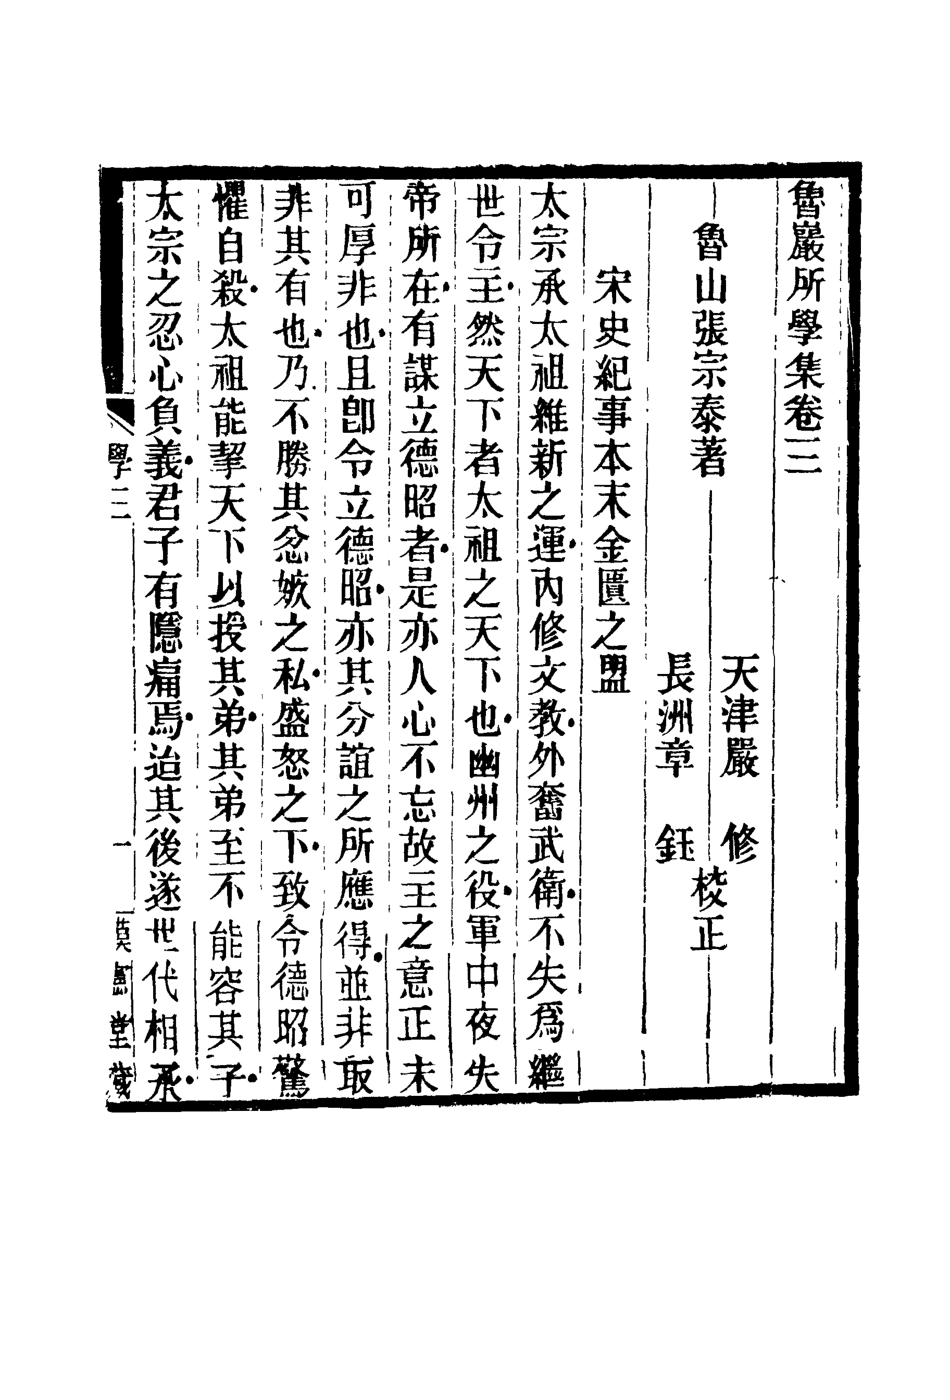 魯巖所學集卷三
魯山張宗泰著
天津嚴 修
長洲章 鈺
校正
宋史紀事本末金匱之盟
太宗承太祖維新之運內修文教外奮武衛不失爲繼
世令主然天下者太祖之天下也幽州之役軍中夜失
帝所在有謀立德昭者是亦人心不忘故主之意正未
可厚非也且卽令立德昭亦其分誼之所應得並非取
非其有也乃不勝其忿嫉之私盛怒之下致令德昭驚
懼自殺太祖能挈天下以授其弟其弟至不能容其子
太宗之忍心負義君子有隱痛焉迨其後遂世代相承
學三
一
模憲堂藏